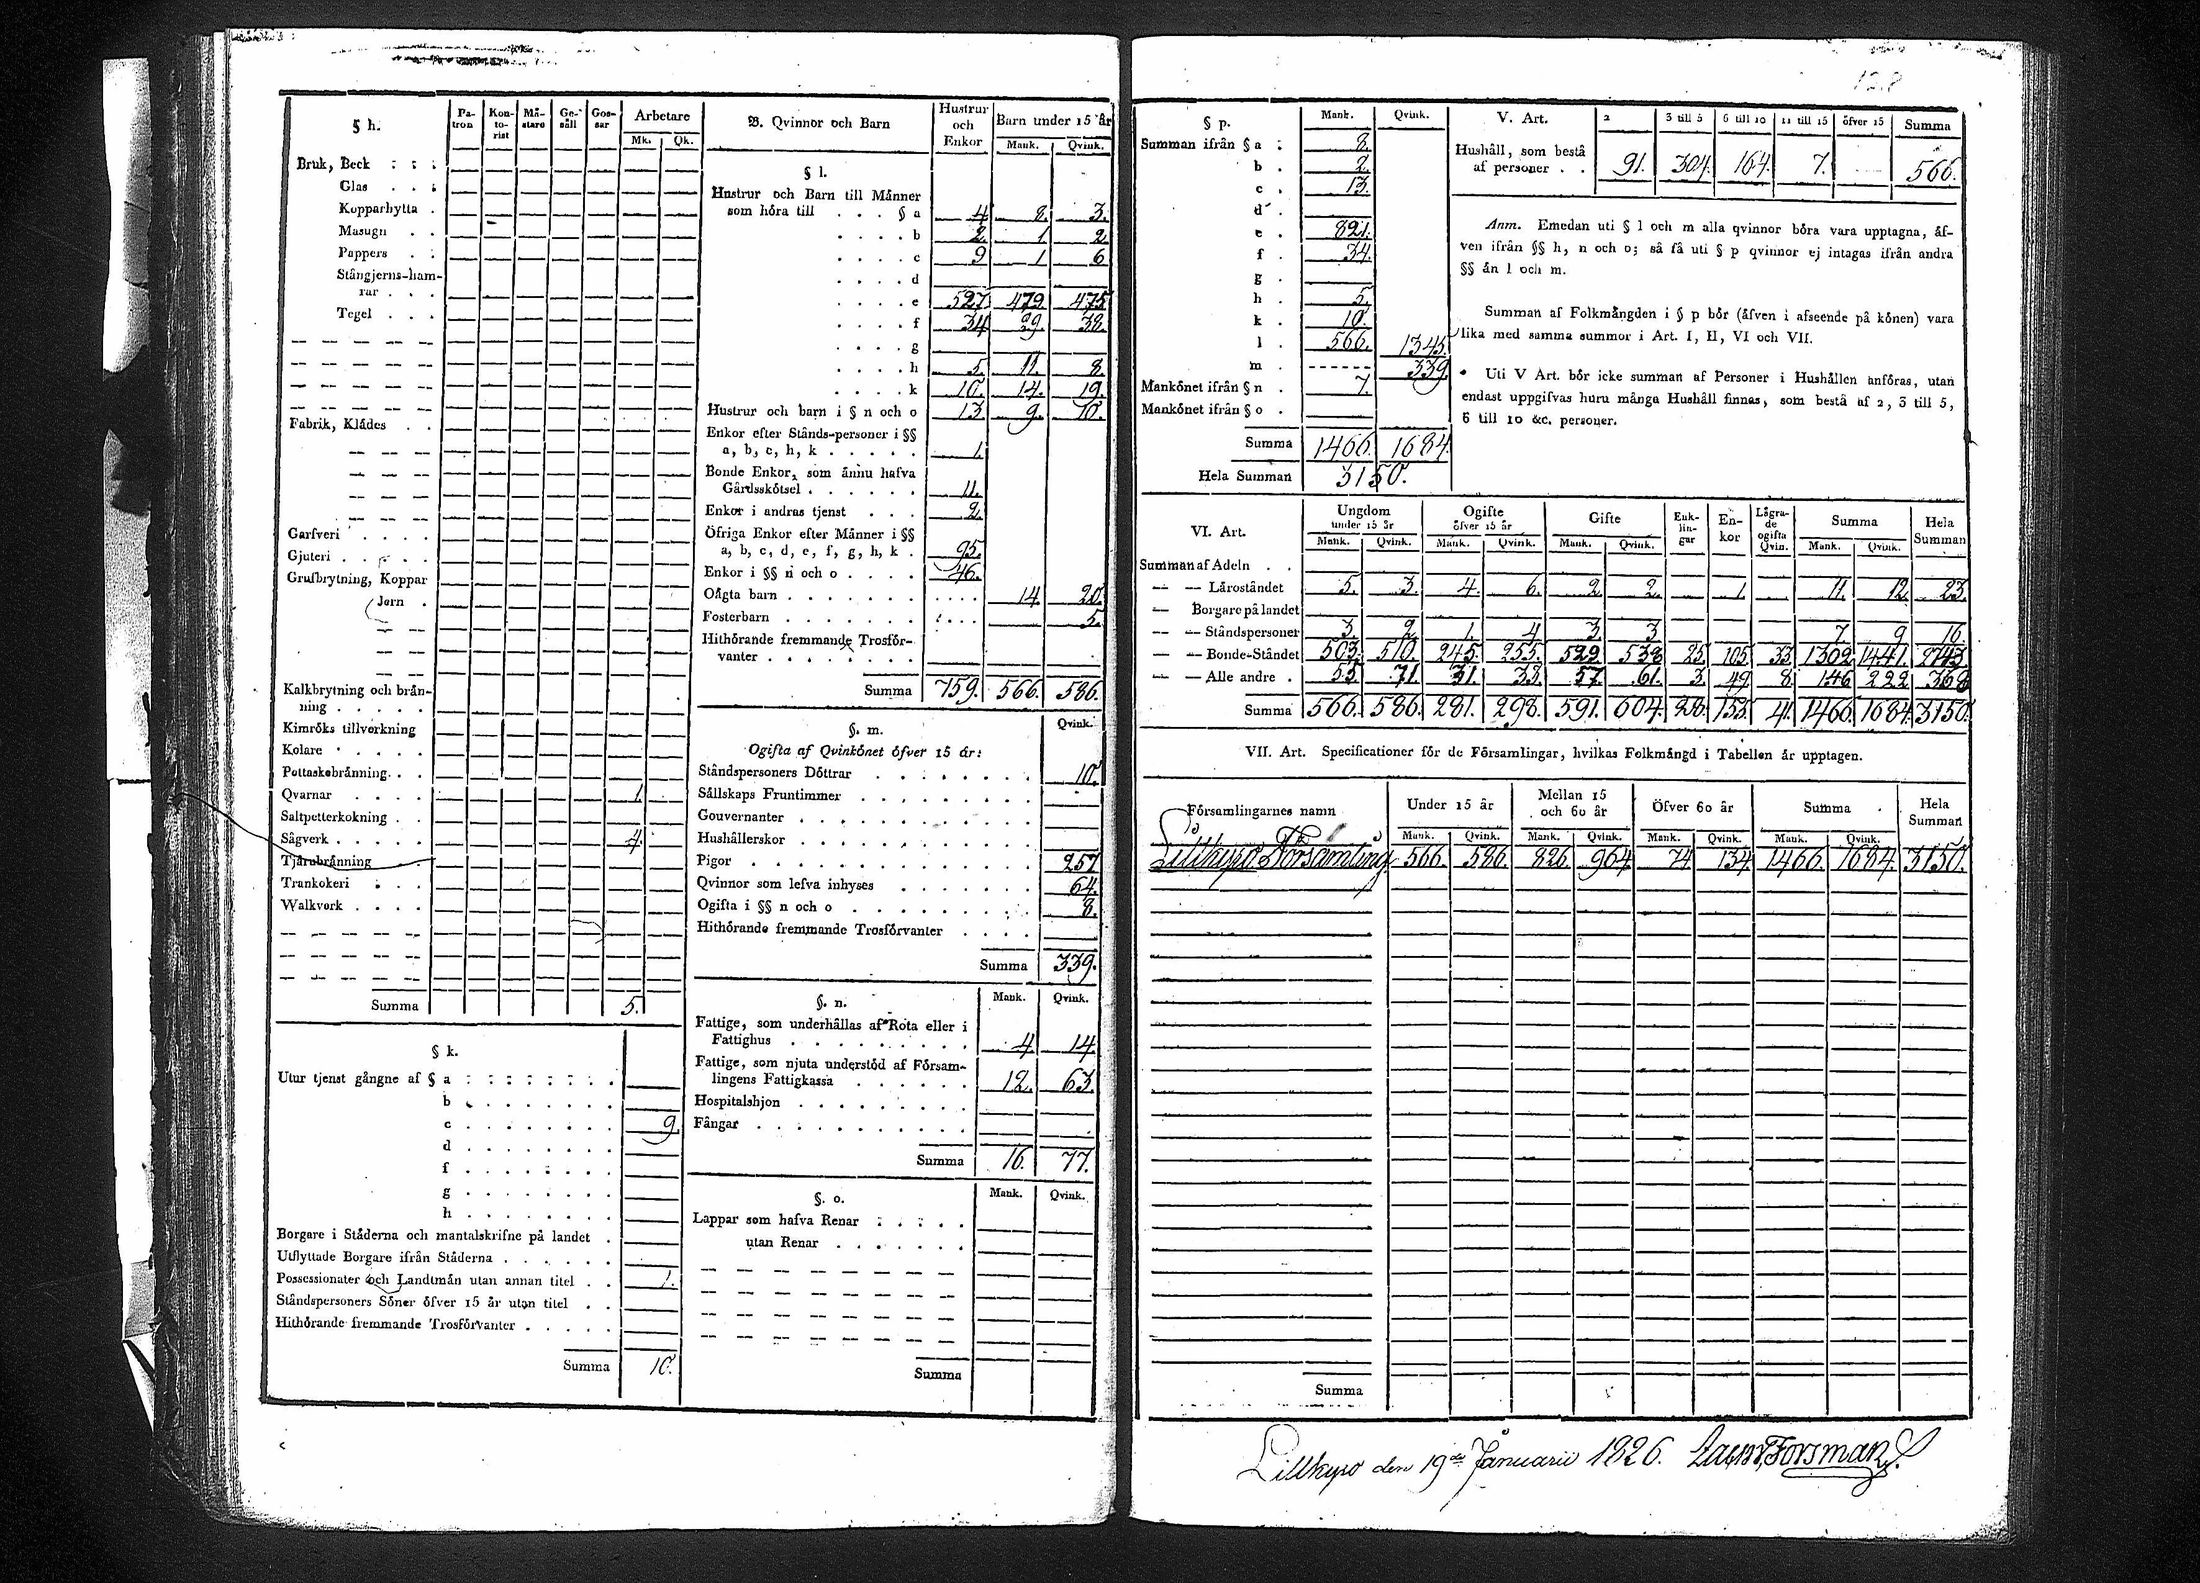 128
§ h.
Pa-tron Kon-to-rist Mä-stare Ge-säll Gos-sar Arbetare
Mk. Qk.
Bruk, Beck
Glas
Kopparhytta
Masugn
Pappers
Stångjerns-ham-
rar
Tegel
Fabrik, Klädes
Garfveri
Gjuteri
Grufbrytning, Koppar
Jern
Kalkbrytning och brän-
ning
Kimröks tillverkning
Kolare
Pottaskebränning
Qvarnar 1.
Saltpetterkokning
Sågverk 4.
Tjärubränning
Trankokeri
Walkverk
Summa 5.
§ k.
Utur tjenst gångne af § a
b
c 9.
d
f
g
h
Borgare i Städerna och mantalskrifne på landet
Utflyttade Borgare ifrån Städerna
Possessionater och Landtmän utan annan titel 1.
Ståndspersoners Söner öfver 15 år utan titel
Hithörande fremmande Trosförvanter
Summa 10.
B. Qvinnor och Barn
Hustrur och Enkor Barn under 15 år
Mank. Qvink.
§ l.
Hustrur och Barn till Männer
som höra till § a 4 8. 3.
b 2. 1. 2.
c 9 1 6
d
e 527. 479. 475
f 34 29. 38.
g
h 5. 11. 8.
k 10. 14. 19.
Hustrur och barn i § n och o 13 9. 10.
Enkor efter Stånds-personer i §§
a, b, c, h, k 1.
Bonde Enkor, som ännu hafva
Gårdsskötsel 11.
Enkor i andras tjenst 2.
Öfriga Enkor efter Männer i §§
a, b, c, d, e, f, g, h, k 95.
Enkor i §§ n och o 46.
Oägta barn 14. 20.
Fosterbarn 5.
Hithörande fremmande Trosför-
vanter
Summa 759. 566. 586.
§. m.
Qvink.
Ogifta af Qvinkönet öfver 15 år:
Ståndspersoners Döttrar 10.
Sällskaps Fruntimmer
Gouvernanter
Hushållerskor
Pigor 257
Qvinnor som lefva inhyses 64.
Ogifta i §§ n och o 8.
Hithörande fremmande Trosförvanter
Summa 339.
§. n. Mank. Qvink.
Fattige, som underhållas af Rota eller i
Fattighus 4 14.
Fattige, som njuta understöd af Försam-
lingens Fattigkassa 12. 63.
Hospitalshjon
Fångar
Summa 16. 77.
§. o. Mank. Qvink.
Lappar som hafva Renar
utan Renar
Summa
§ p. Mank. Qvink.
Summan ifrån § a 8.
b 2.
c 13.
d
e 821.
f 34.
g
h 5.
k 10.
l 566. 1345.
m 339.
Mankönet ifrån § n 7.
Mankönet ifrån § o
Summa 1466. 1684.
Hela Summan 3150.
V. Art. 2 3 till 5 6 till 10 11 till 15 öfver 15 Summa
Hushåll, som bestå
af personer 91. 304. 164. 7. 566.
Anm. Emedan uti § l och m alla qvinnor böra vara upptagna, äf-
ven ifrån §§ h, n och o; så få uti § p qvinnor ej intagas ifrån andra
§§ än l och m.
Summan af Folkmängden i § p bör (äfven i afseende på könen) vara
lika med samma summor i Art. I, II, VI och VII.
Uti V Art. bör icke summan af Personer i Hushållen anföras, utan
endast uppgifvas huru många Hushåll finnas, som bestå af 2, 3 till 5,
6 till 10 &c. personer.
VI. Art. Ungdom under 15 år Ogifte öfver 15 år Gifte Enk-lin-gar En-kor Lägra-de ogifta Qvin. Summa Hela Summan
Mank. Qvink. Mank. Qvink. Mank. Qvink. Mank. Qvink.
Summan af Adeln
— — Läroståndet 5. 3. 4. 6. 2 2. 1 11. 12. 23.
— Borgare på landet
— — Ståndspersoner 3. 2. 1. 4 3. 3 7. 9 16.
— — Bonde-Ståndet 503. 510. 245. 255. 529. 538 25. 105. 33. 1302. 1441. 2743.
— — Alle andre 55 71. 31. 33. 57. 61. 3. 49 8 146 222 368
Summa 566. 586. 281. 298. 591. 604. 28. 155. 41. 1466. 1684. 3150.
VII. Art. Specificationer för de Församlingar, hvilkas Folkmängd i Tabellen är upptagen.
Församlingarnes namn Under 15 år Mellan 15 och 60 år Öfver 60 år Summa Hela Summan
Mank. Qvink. Mank. Qvink. Mank. Qvink. Mank. Qvink.
Lillkyro Församling 566. 586. 826. 964. 74 134. 1466. 1684. 3150.
Summa
Lillkyro den 19de Januarii 1826. Forsman